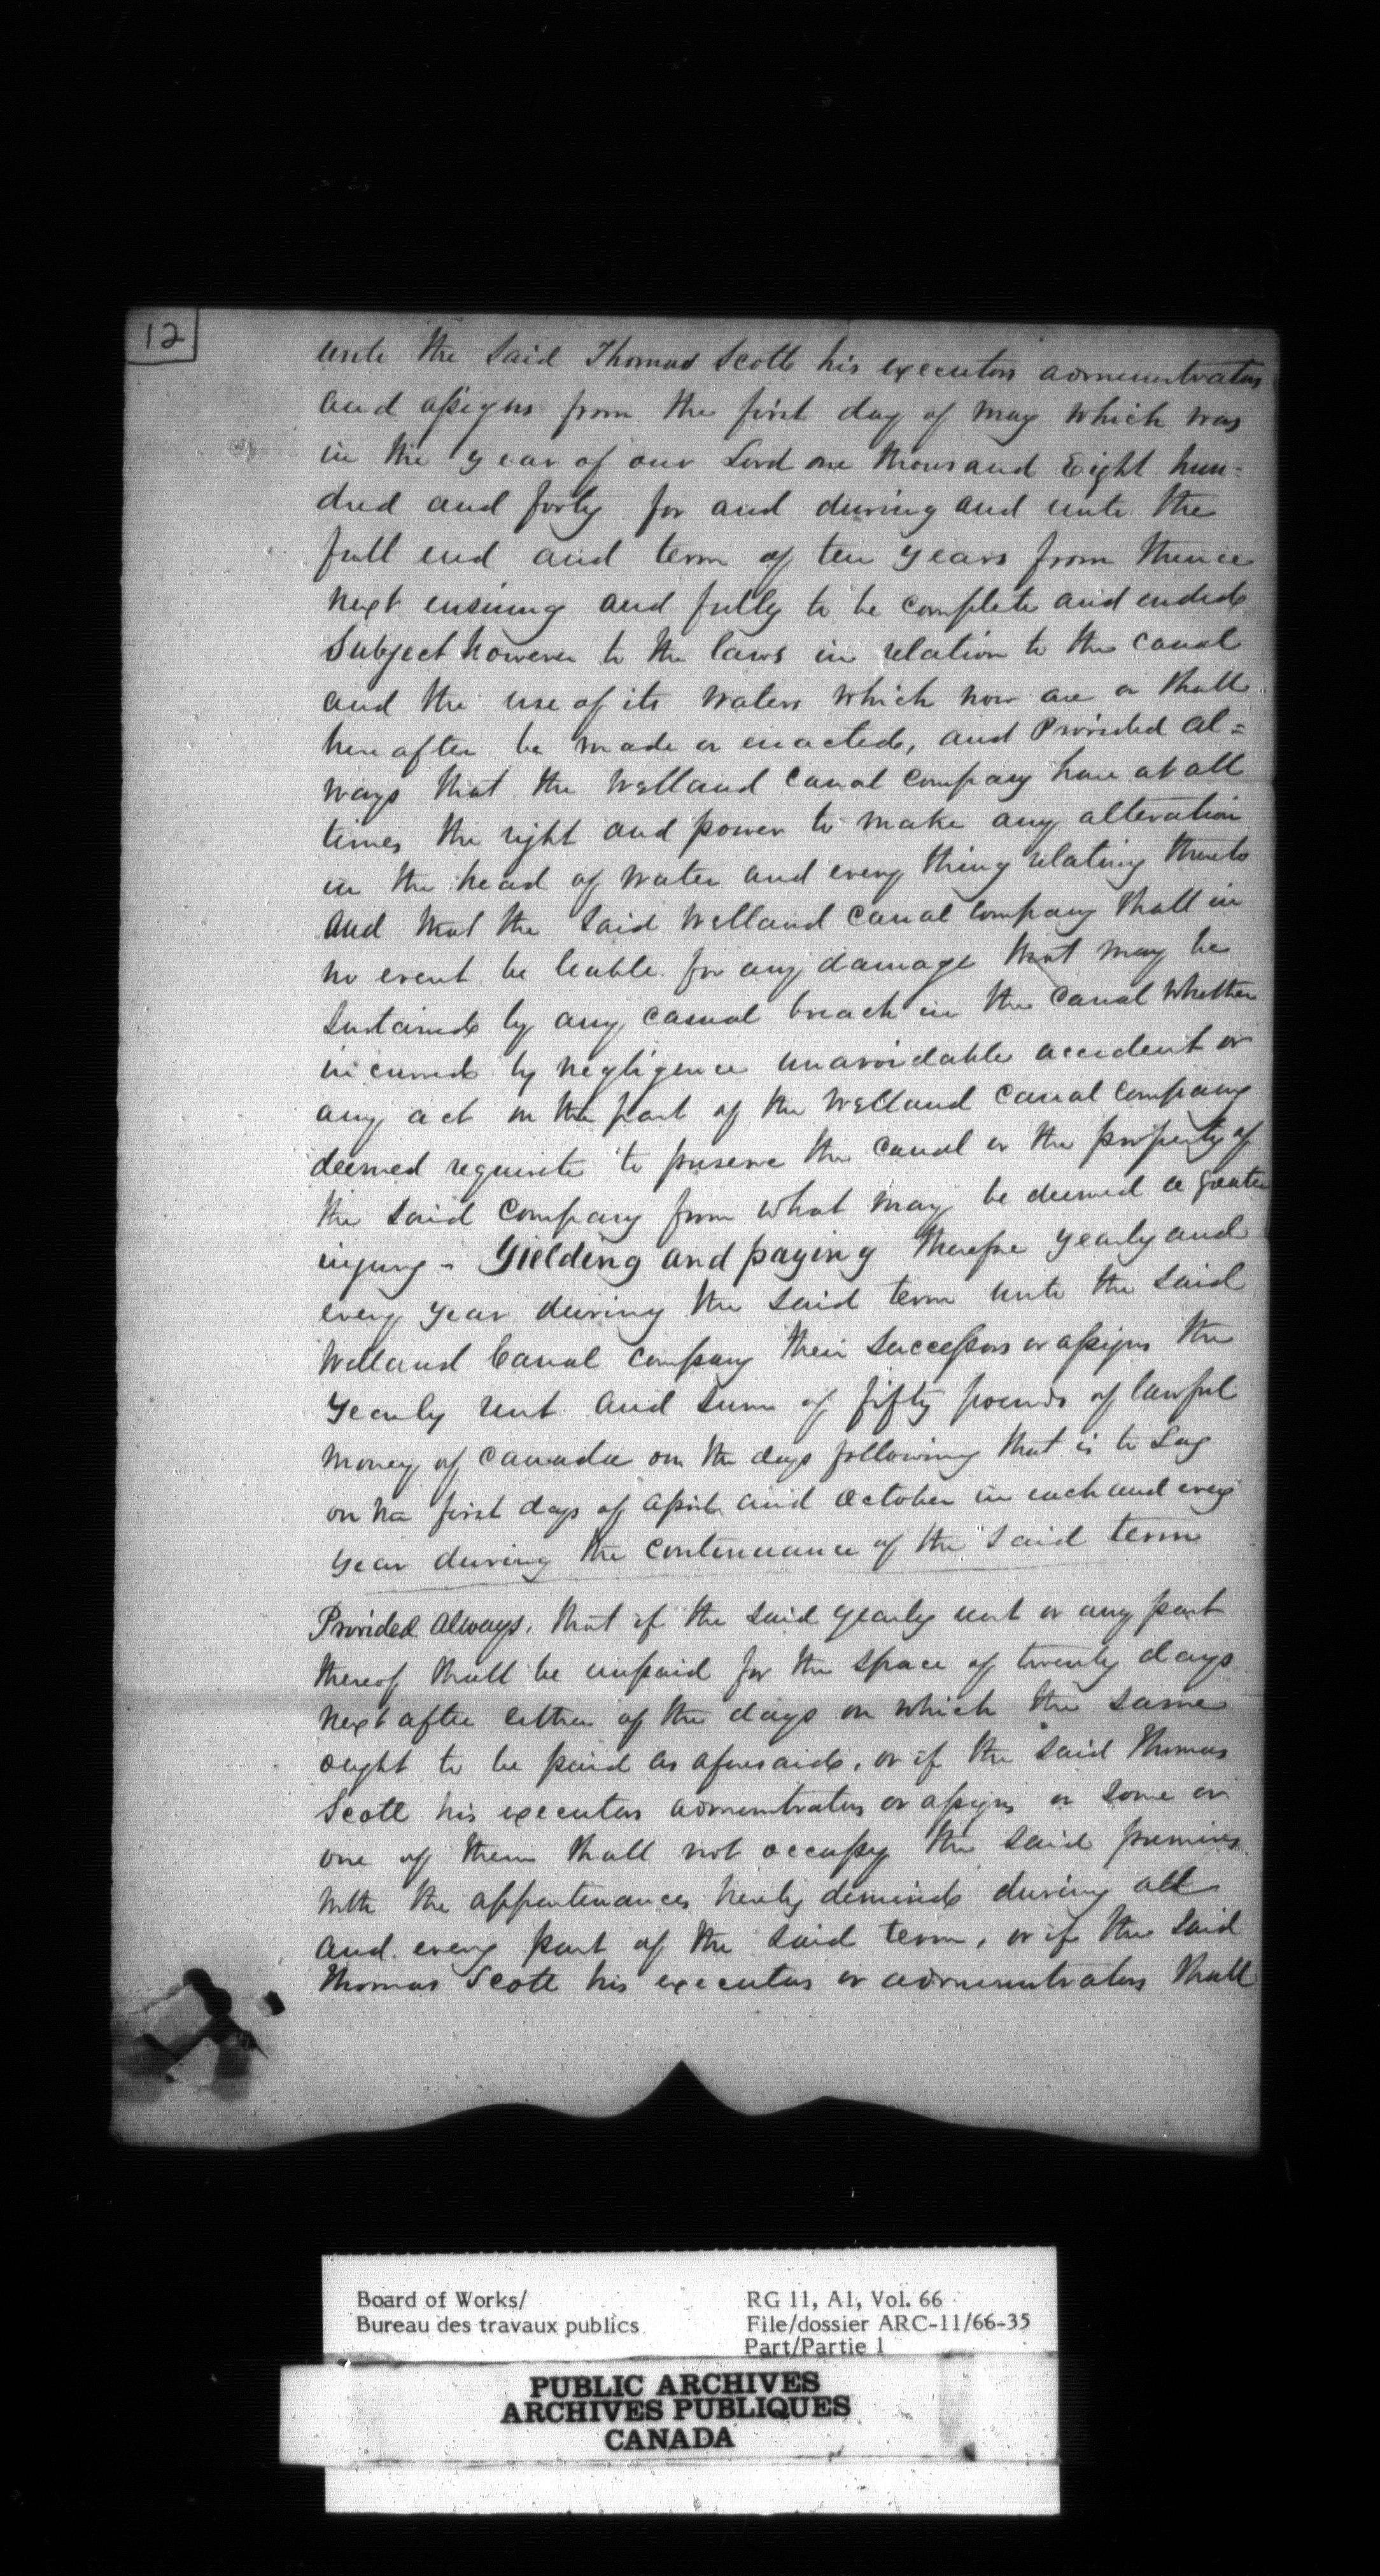 12
unto the said Thomas Scott his executors administrators
and assigns from the first day of May which was
in the year of our Lord one thousand Eight hun=
dred and forty for and during and unto the
full end and term of ten years from thence
next ensuing and fully to be complete and ended
Subject however to the laws in relation to the canal
and the use of its waters which now are or shall
hereafter be made or enacted, and Provided al=
ways that the Welland Canal Company have at all
times the right and power to make any alteration
in the head of water and every thing relating thereto
and that the said Welland Canal Company shall in
no event be leable for any damage that may be
sustained by any casual breach in the canal whether
incurred by negligence unavoidable accident or
any act on the part of the Welland Canal Company
deemed requisite to preserve the canal or the property of
the said Company from what may be deemed a greater
injury - Yielding and paying therefore yearly and
every year during the said term unto the said
Welland Canal Company their successors or assigns the
yearly rent and sum of fifty pounds of lawful
money of Canada on the days following that is to say
on the first days of April and October in each and every
year during the continuance of the said term
Provided always, that if the said yearly rent or any part
thereof shall be unpaid for the space of twenty days
next after either of the days on which the same
ought to be paid as aforesaid, or if the said Thomas
Scott his executors administrators or assigns or some or
one of them shall not occupy the said premises
with the appurtenances hereby demised during all
and every part of the said term, or if the said
Thomas Scott his executors or administrators shall
Board of Works/
Bureau des travaux publics
RG 11, A1, Vol. 66
File/dossier ARC-11/66-35
Part/Partie 1
PUBLIC ARCHIVES
ARCHIVES PUBLIQUES
CANADA